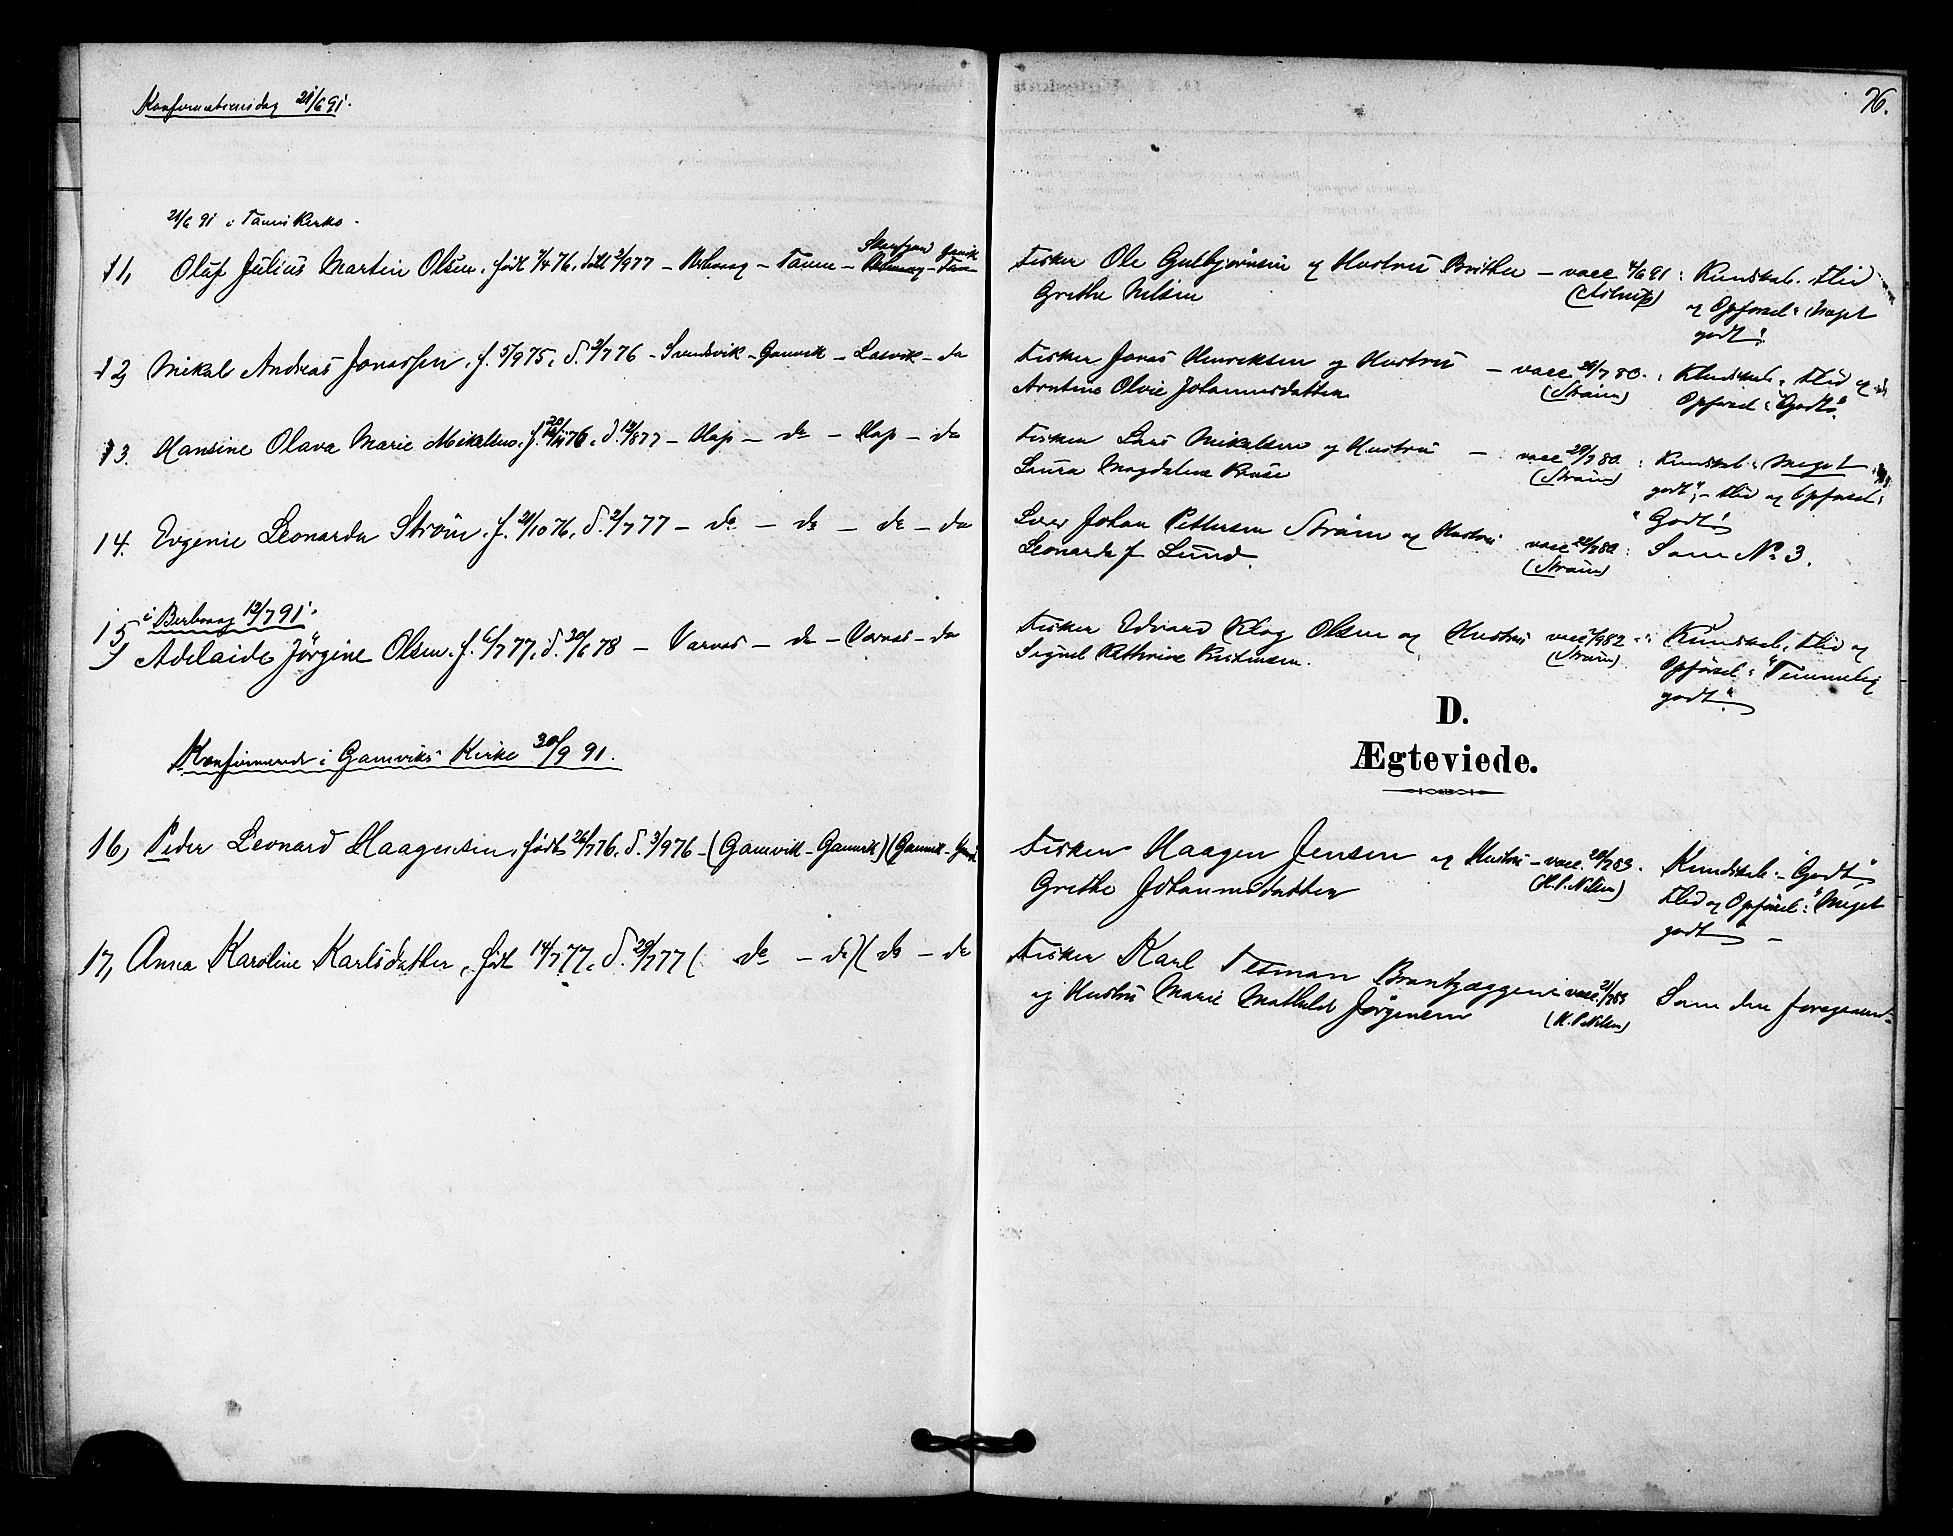 Konfirmationsdag 21/6 91.
76.
21/6 91 i Tanens Kirke.
11, Oluf Julius Martin Olsen, født 7/4 76, døbt 2/9 77 - Berlevaag - Tanen -
Fisker Ole Gulbjørnsen og Hustru Birithe - vacc 4/6 91 : Kundskab. Flid
Grethe Nilsen (Astrup) og Opførsel: Meget
godt".
12, Mikal Andreas Jonassen, f. 5/9 75, d. 2/7 76 - Sundsvik - Gamvik - Laevik - do
Fisker Jonas Henriksen og Hustru - vacc 80. : Kundskab, Flid og
Arntine Olvie Johannesdatter (Strøm) Opførsel: "Godt".
13. Hansine Olava Marie Mikalsen, f. 76, d. 12/8 77 - Hop - do - Hop - do
Fisker Lars Mikalsen og Hustru - vacc 29/7 80. : Kundskab: Meget
Laura Magdalene (Strøm) godt", - Flid og Opførsel:
"Godt"
14. Evgenie Leonarda Strøm, f. 21/10 76, d. 2/7 77 - do - do - do - do
Johan Pettersen Strøm og Hustru vacc 80. : Som No 3.
Leonarda f. Lund. (Strøm)
i Berlevaag 12/7 91.
15, Adelaide Jörgine Olsen, f. 6/7 77, d. 30/6 78 - Varnæs - do - Varnæs - do
Fisker Edvard Klog Olsen og Hustru vacc 82 : Kundskab, Flid og
Signel Kathrine Kristensen. (Strøm) Opførsel: "Temmelig
godt".
D.
Ægteviede.
Konfirmerede i Gamviks Kirke 30/9 91.
16, Peder Leonard Haagensen, født 26/7 76, d. 3/9 76 - (Gamvik - Gamvik) (Gamvik -
Fisker Haagen Jensen og Hustru - vacc. 83. Kundskab: - "Godt",
Grethe Johannesdatter (H.P. Nilsen) Flid og Opførsel: "Meget
godt" -
17, Anna Karoline Karlsdatter, født 14/7 77, d. 29/7 77 ( do - do) ( do - do
Fisker Karl Tesman vacc. 21/7 83 Som den foregaaende
og Hustru Marie Mathilde Jørgensen (H.P. Nilsen)